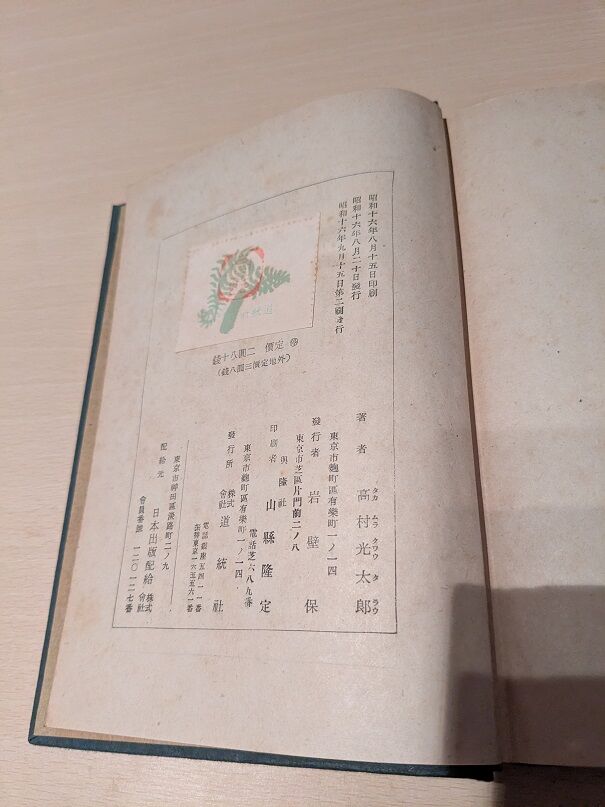 昭和十六年八月十五日印刷
昭和十六年八月二十日發行
昭和十六年九月十五日第二刷發行
定價 二圓八十錢
(外地定價三圓八錢)
著者 高村光太郎
タカ ムラ クワウ タ ラウ
東京市麴町區有樂町一ノ一四
發行者 岩壁保
東京市芝區片門前二ノ八
興隆社
印刷者 山縣隆定
電話芝六八九番
東京市麴町區有樂町一ノ一四
發行所 株式會社 道統社
電話銀座五四一一番
振替東京一六五五六一番
東京市神田區淡路町二ノ九
配給元 日本出版配給株式會社
會員番號 一二〇一二七番